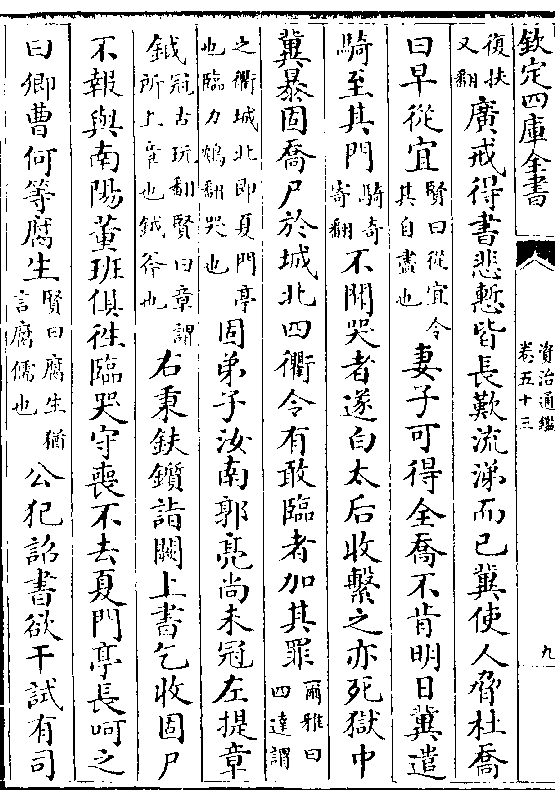 欽定四庫全書
資治通鑑
卷五十三
九
復扶
又翻
廣戒得書悲慙皆長歎流涕而已冀使人脅杜喬
曰早從宜
賢曰從宜令
其自盡也
妻子可得全喬不肯明日冀遣
騎至其門
騎奇
寄翻
不聞哭者遂白太后收繫之亦死獄中
冀暴固喬尸於城北四衢令有敢臨者加其罪
爾雅曰
四達謂
之衢城北即夏門亭
也臨力鴆翻哭也
固弟子汝南郭亮尚未冠左提章
鉞
冠古玩翻賢曰章謂
所上章也鉞斧也
右秉鈇鑕詣闕上書乞收固尸
不報與南陽董班俱徃臨哭守喪不去夏門亭長呵之
曰卿曹何等腐生
賢曰腐生猶
言腐儒也
公犯詔書欲干試有司